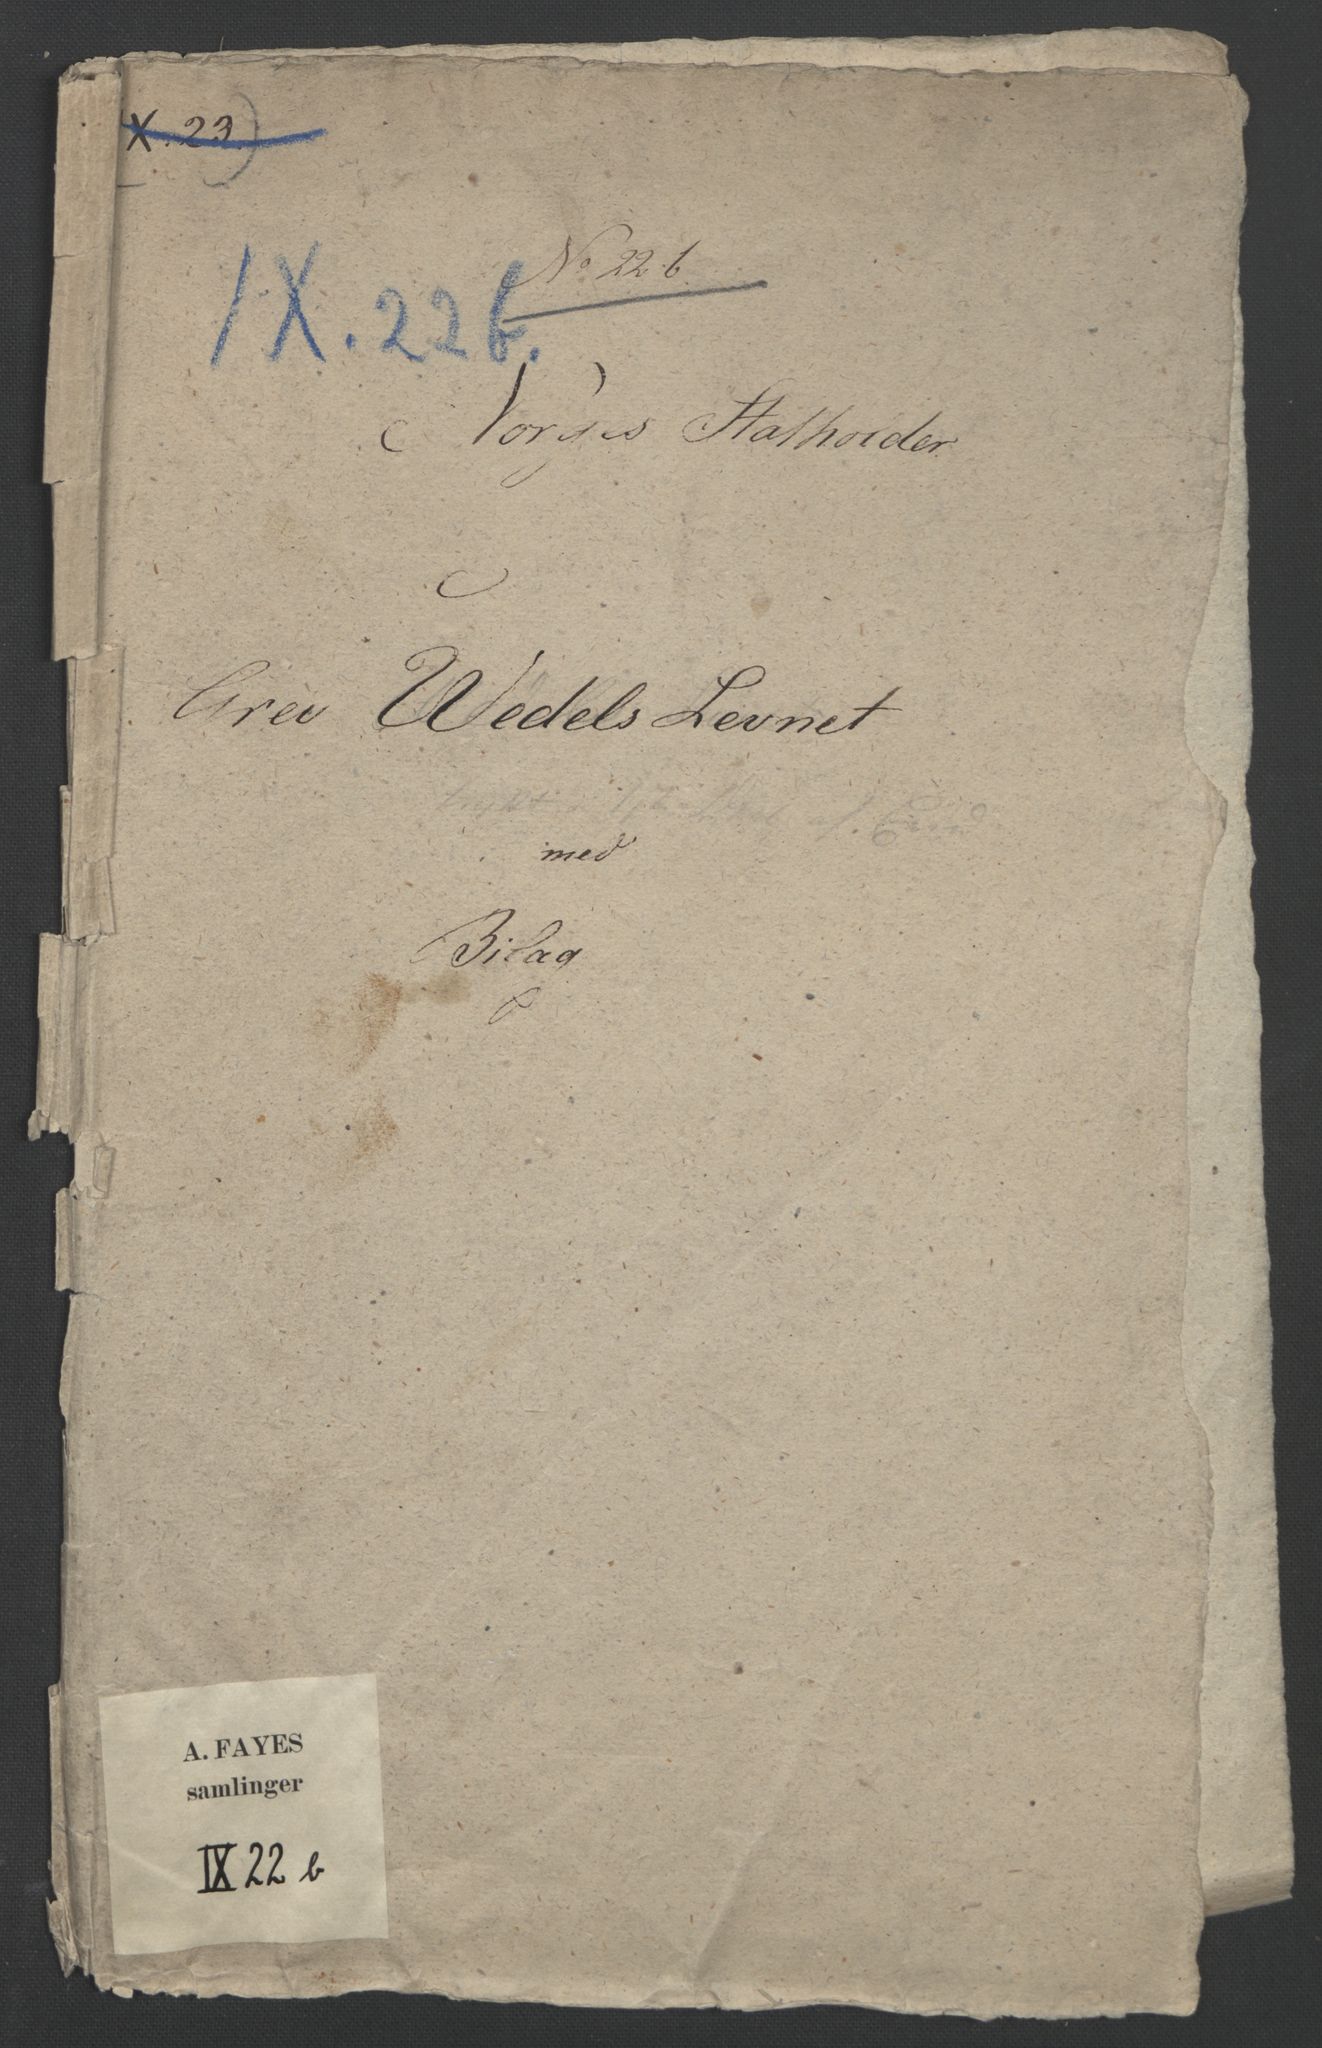 X. 23)
No 22 b
IX. 22 b.
Norges Statholder
Grev Wedels Levnet
med
Bilag
A. FAYES
samlinger
IX 22 b